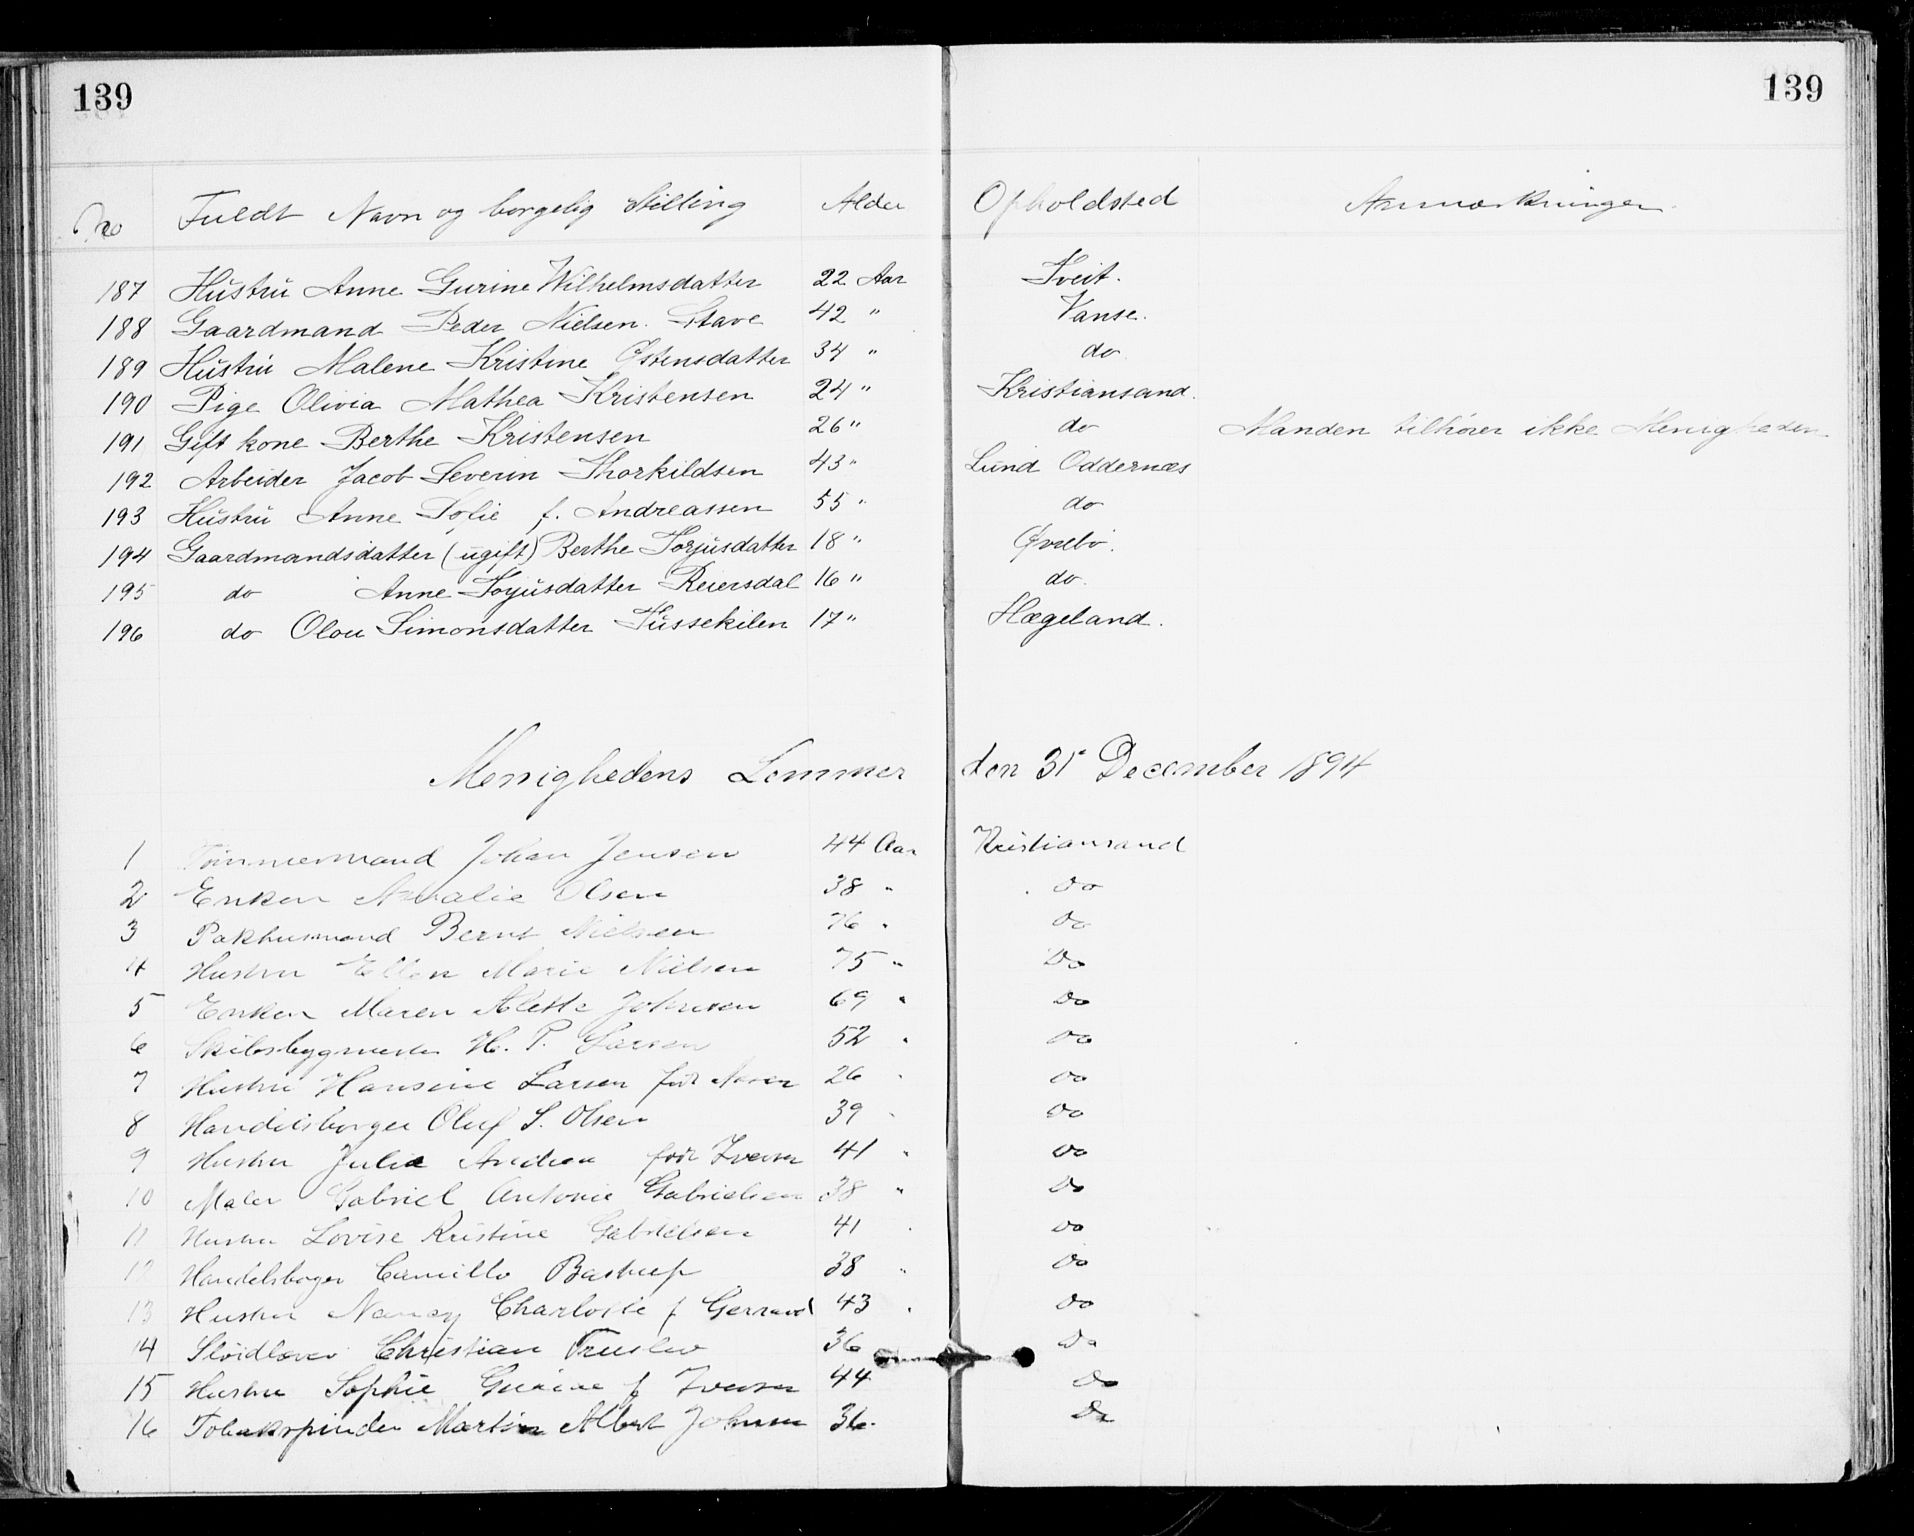 139 139
No Fuldt Navn og borgelig Stilling Alder Opholdsted Anmærkninger.
187 Hustru Anne Gurine Wilhelmsdatter 22 Aar Tveit.
188 Gaardmand Peder Nielsen Stave 42 " Vanse.
189 Hustru Malene Kristine Østensdatter 34 " do
190 Pige Olivia Mathea Kristensen 24 " Kristiansand.
191 Gift kone Berthe Kristensen 26 " do Manden tilhører ikke Menigheden
192 Arbeider Jacob Severin Thorkildsen 43 " Lund Oddernæs
193 Hustru Anne Sofie f. Andreassen 55 " do
194 Gaardmandsdatter (ugift) Berthe Torjusdatter 18 " Øvrebø.
195 do Anne Torjusdatter Reiersdal 16 " do.
196 do Olou Simonsdatter Tussekilen 17 " Hægeland.
Menighedens Lemmer den 31 December 1894
1 Tømmermand Johan Jensen 44 Aar Kristiansand
2 Enken Amalie Olsen 38 " Do
3 Pakhusmand Bernt Nielsen 76 " Do
4 Hustru Ellen Marie Nielsen 75 " Do
5 Enken Maren Alette Johnsen 69 " Do
6 Skibsbygmester H. P. Larsen 52 " Do
7 Hustru Hansine Larsen født 26 " Do
8 Handelsborger Oluf S. Olsen 39 " Do
9 Hustru Julie Andrea født Iversen 41 " Do
10 Maler Gabriel Antonie Gabrielsen 38 " Do
11 Hustru Lovise Kristine Gabrielsen 41 " Do
12 Handelsboger Camillo Bastrup 38 " Do
13 Hustru Nancy Charlotte f Gerrard 43 " Do
14 Sløidlærer Christian Truslew 36 Do
15 Hustru Sophie Gurine f Iversen 44 Do
16 Tobakspinder Martin Albert Johnsen 36. Do